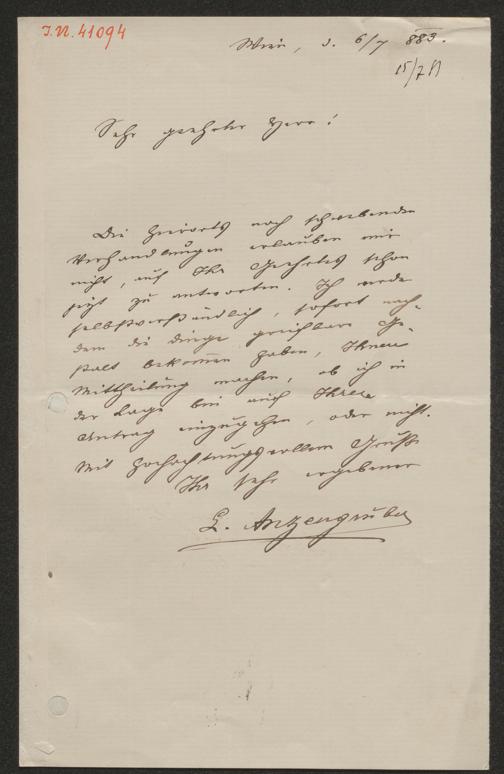 I.N. 41094
Wien, d. 6/7 883.
15/7
Sehr geehrter Herr!
Die hierorts noch schwebenden
Verhandlungen erlauben mir
nicht, auf Ihr Geehrtes schon
jetzt zu antworten. Ich werde
selbstverständlich, sofort nach-
dem die Dinge greifbare Ge-
stalt bekommen haben, Ihnen
Mittheilung machen, ob ich in
der Lage bin auf Ihren
Antrag einzugehen, oder nicht.
Mit hochachtungsvollem Gruße
Ihr sehr ergebener
L. Anzengruber